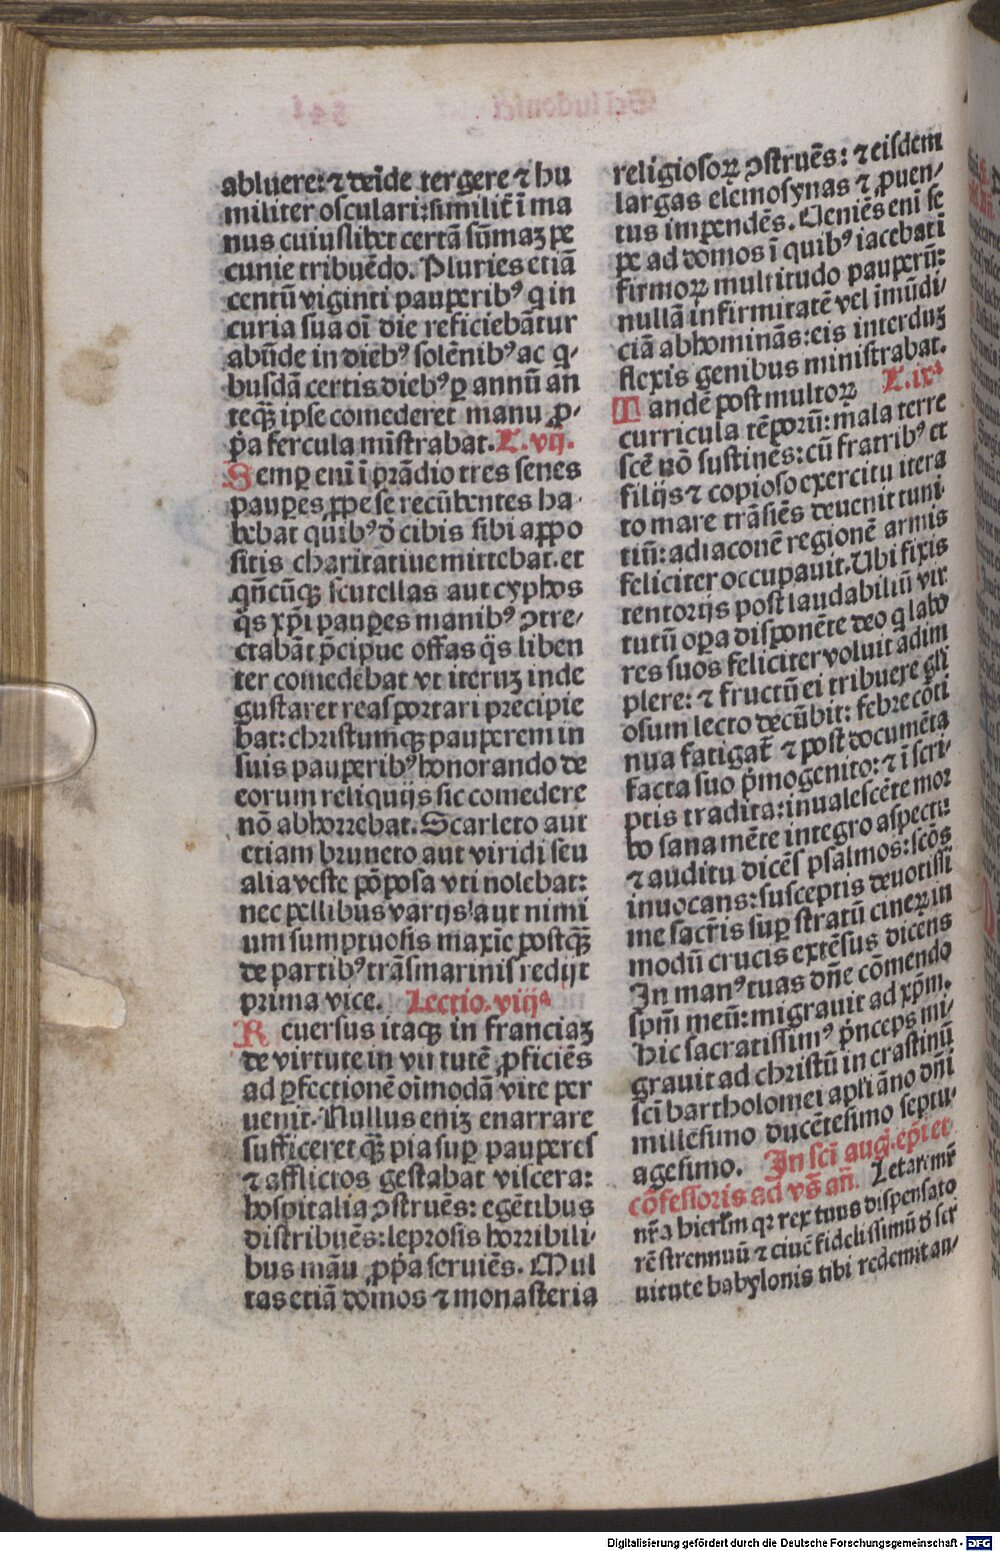 abluere: ⁊ deīde tergere ⁊ hu
militer osculari: similit̄ ī ma
nus cuiuslibet certā sūmaꝫ pe
cunie tribuēdo. Pluries etiā
centū viginti pauperibꝰ q in
curia sua oī die reficiebātur
abūde in diebꝰ solēnibꝰ ac q-
busdā certis diebꝰ ꝑ annū an
teqꝫ̄ ipse comederet manu ꝓ-
p̄a fercula mīstrabat. L. vij.
Semꝑ enī ī prādio tres senes
pauꝑes ꝓpe se recūbentes ha-
bebat quibꝰ d̄ cibis sibi appo
sitis charitatiue mittebat. et
qn̄cūqꝫ scutellas aut cyphos
q̄s xp̄i pauꝑes manibꝰ ꝯtre-
ctabāt p̄cipue offas q̄s liben
ter comedebat vt iteruꝫ inde
gustaret reasportari precipie
bat: christumqꝫ pauperem in
suis pauperibꝰ honorando de
eorum reliquijs sic comedere
nō abhorrebat. Scarleto aut
etiam bruneto aut viridi seu
alia veste pōposa vti nolebat:
nec pellibus varijs aut nimi
um sumptuosis maxīe postqꝫ̄
de partibꝰ trāsmarinis redijt
prima vice. Lectio. viijᵃ
Reuersus itaqꝫ in franciaꝫ
de virtute in vir tutē ꝓficiēs
ad ꝑfectionē oīmodā vite per
uenit. Nullus eniꝫ enarrare
sufficeret qꝫ̄ pia suꝑ pauperes
⁊ afflictos gestabat viscera:
hospitalia ꝯstruēs: egētibus
distribuēs: leprosis horribili-
bus māu ꝓp̄a seruiēs. Mul
tas etiā domos ⁊ monasteria
religiosoꝝ ꝯstruēs: ⁊ eisdem
largas elemosynas ⁊ ꝓuen-
tus impendēs. Ueniēs enī se
pe ad domos ī quibꝰ iacebat ī
firmoꝝ multitudo pauperū:
nullā infirmitatē vel īmūdi-
ciā abhominās: eis interduꝫ
flexis genibus ministrabat.
L. ixᵃ
Tandē post multoꝝ
curricula tēporū: mala terre
scē nō sustinēs: cū fratribꝰ et
filijs ⁊ copioso exercitu itera
to mare trāsiēs deuenit tuni
tiū: adiaconē regionē armis
feliciter occupauit. Ubi fixis
tentorijs post laudabiliū vir
tutū oꝑa disponēte deo q labo
res suos feliciter voluit adim
plere: ⁊ fructū ei tribuere gl̄i
osum lecto decūbit: febre cōti
nua fatigat̄ ⁊ post documēta
facta suo p̄mogenito: ⁊ ī scri-
ptis tradita: inualescēte mor
bo sana mēte integro aspectu
⁊ auditu dicēs psalmos: scōs
inuocans: susceptis deuotissi
me sacr̄is suꝑ stratū cineꝝ in
modū crucis extēsus dicens
In manꝰ tuas dn̄e cōmendo
sp̄m meū: migrauit ad xp̄m.
Hic sacratissimꝰ p̄nceps mi-
grauit ad christū in crastinū
sc̄i bartholomei apl̄i āno dn̄i
millesimo ducētesimo septu-
agesimo. In sc̄i aug. ep̄i et
cōfessoris ad vs̄ an̄. Letare mr̄
nr̄a hierl̄m qr rex tuus dispensato
rē strennuū ⁊ ciuē fidelissimū d̄ ser
uitute babylonis tibi redemit au-
Digitalisierung gefördert durch die Deutsche Forschungsgemeinschaft - DFG